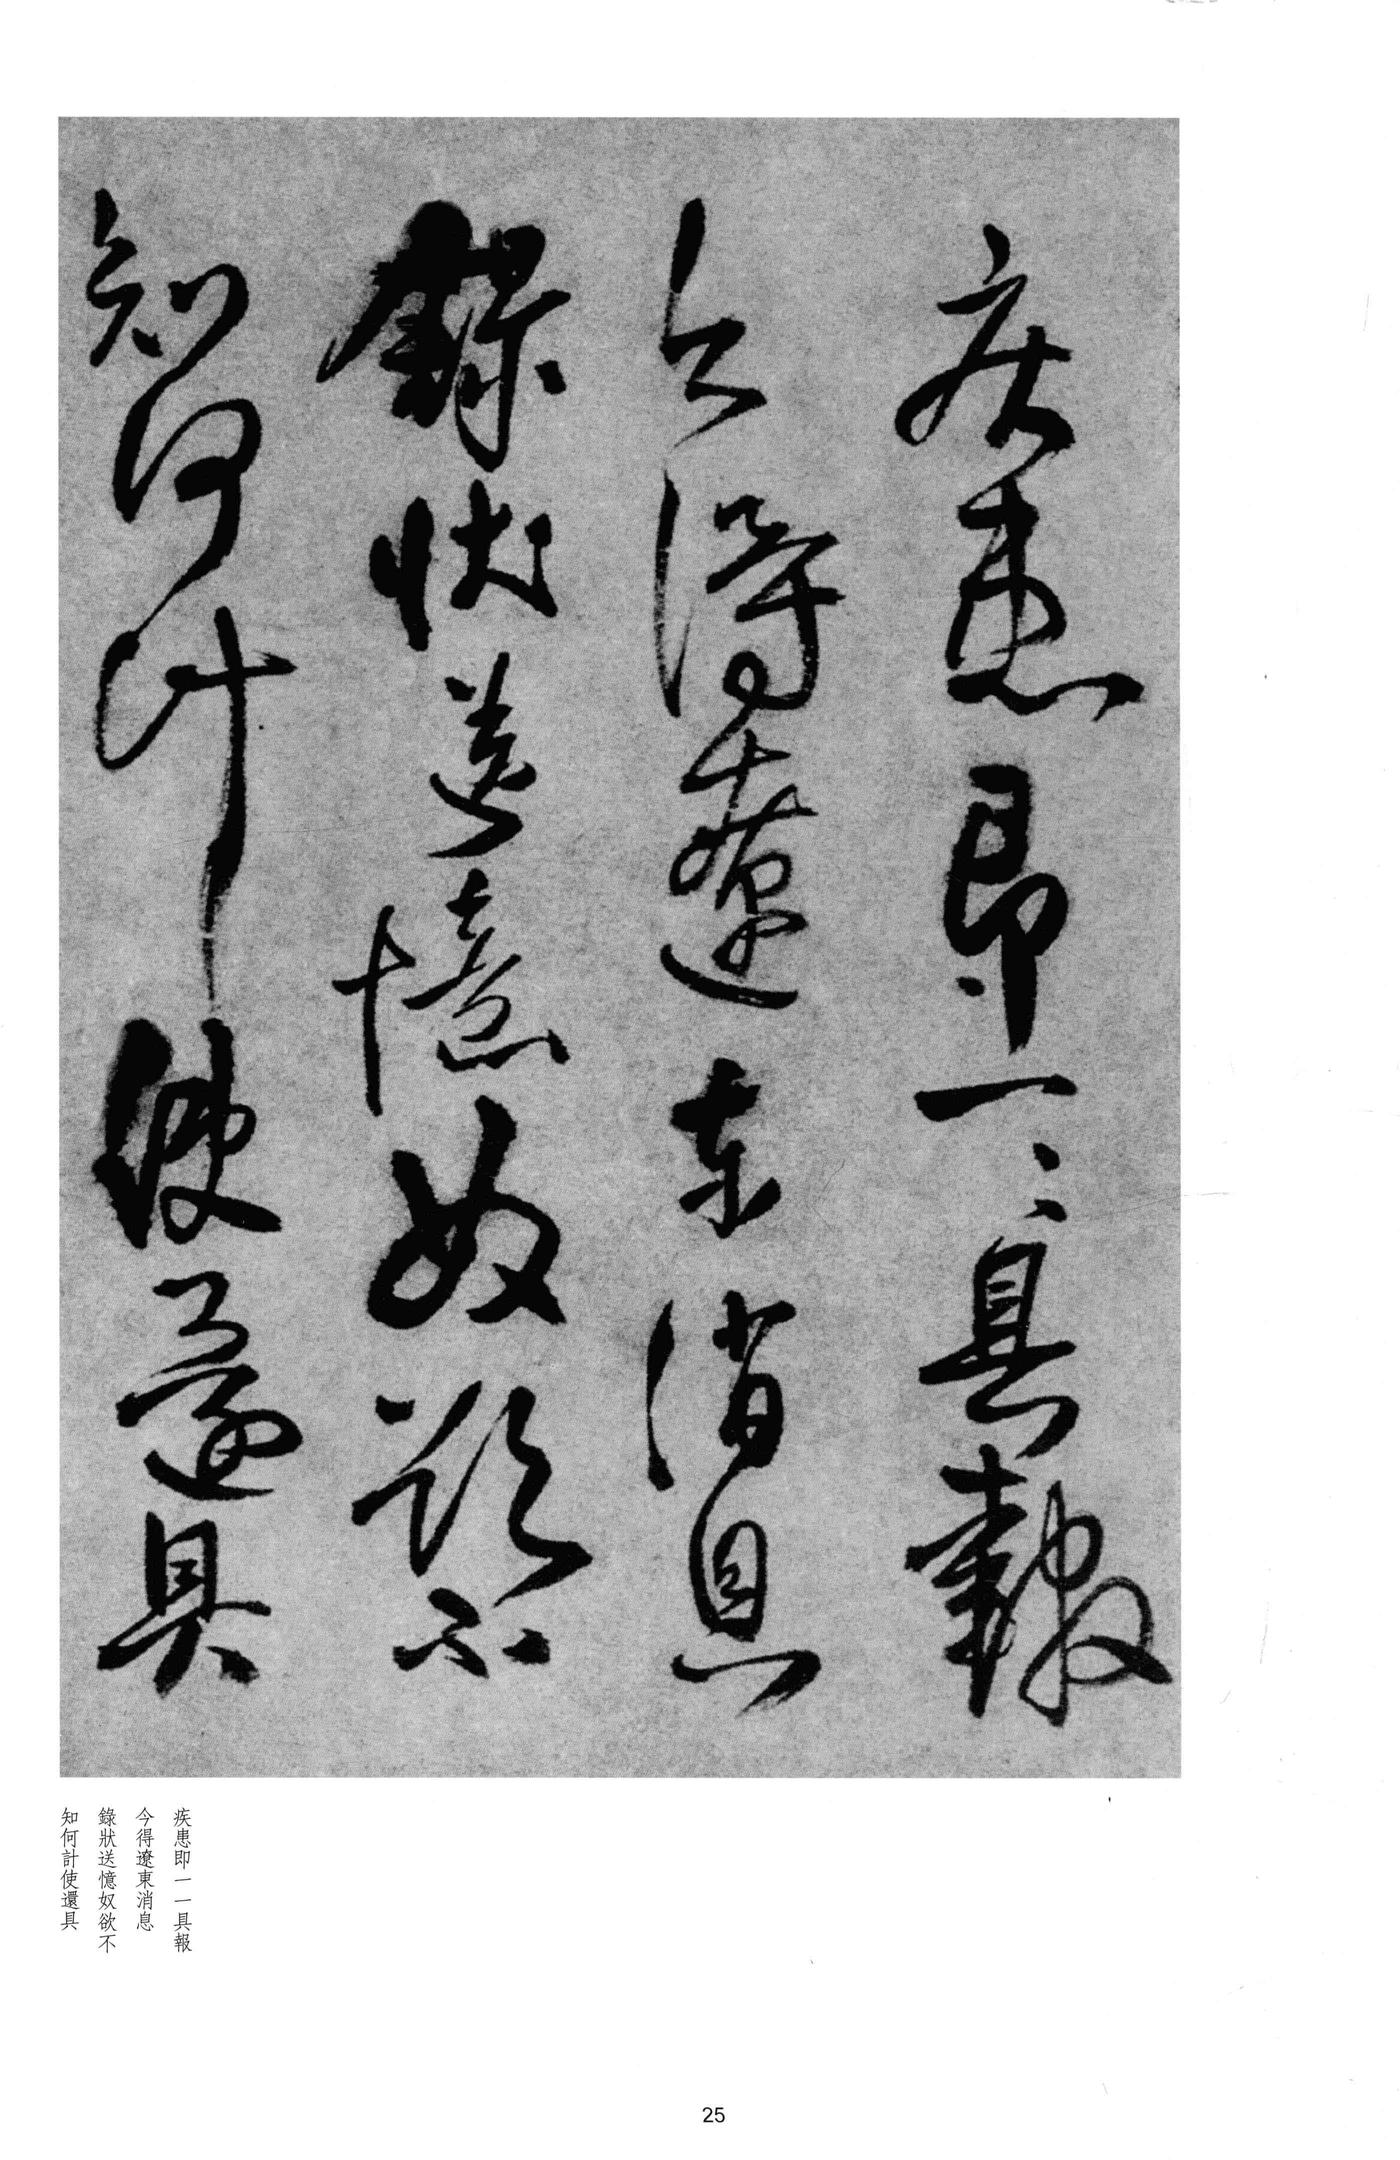 疾患即一一具報
今得遼東消息
錄狀送憶奴欲不
知何計使還具
疾患即一一具報
今得遼東消息
錄狀送憶奴欲不
知何計使還具
25